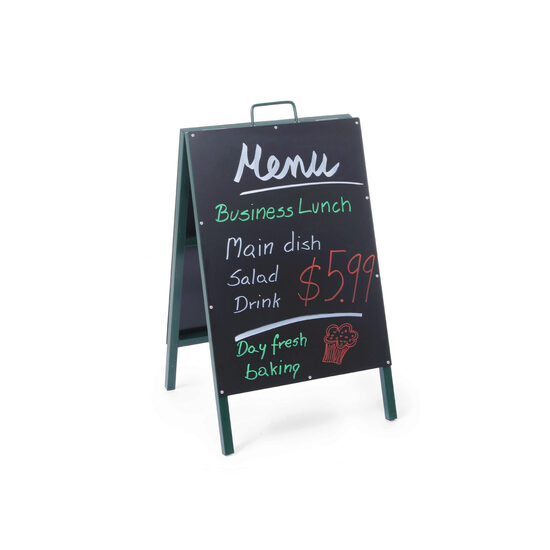 Menu
Business Lunch
Main dish
Salad
Drink
$5.99
Day fresh
baking